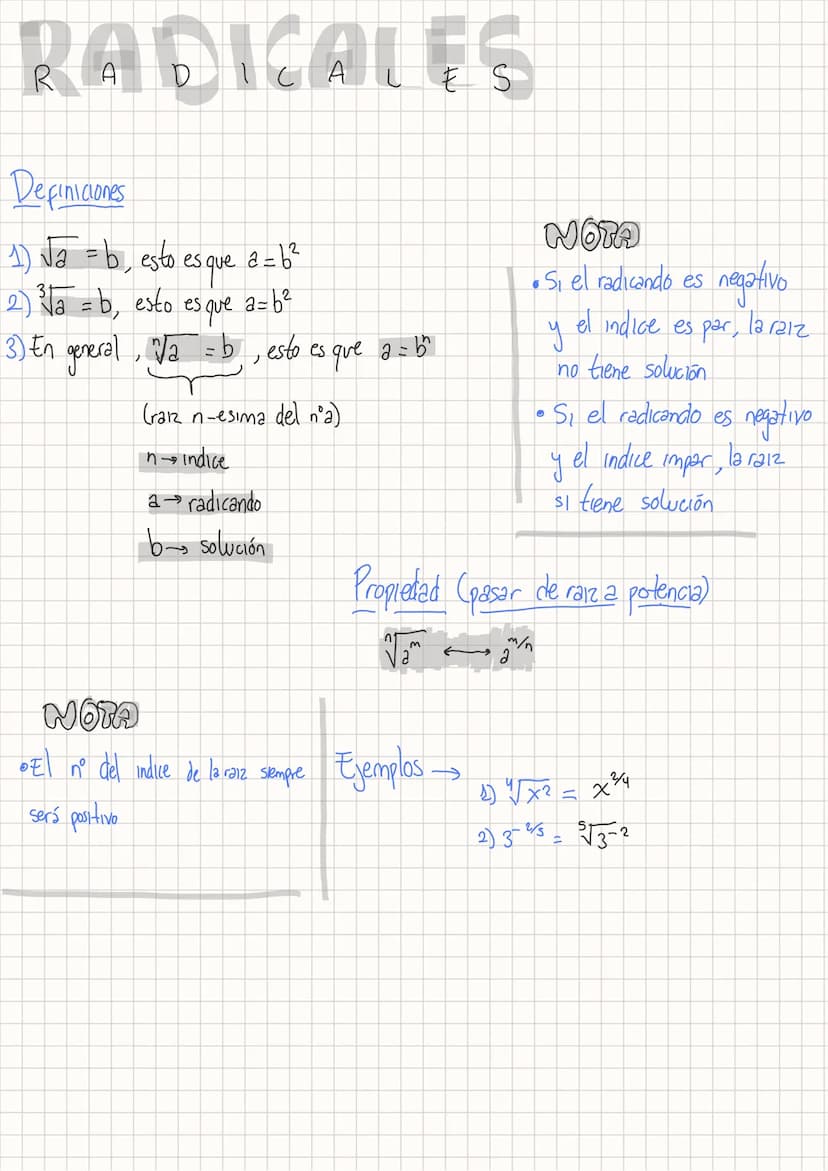 RADICALES
R A D I C A L E S
Definiciones
1) √a = b, esto es que a = b²
2) ³√a = b, esto es que a = b²
3) En general, ⁿ√a = b, esto es que a = bⁿ
(raiz n-esima del nº a)
n → indice
a → radicando
b → solución
NOTA
• Si el radicando es negativo
y el indice es par, la raiz
no tiene solución
• Si el radicando es negativo
y el indice impar, la raiz
si tiene solución
Propiedad (pasar de raiz a potencia)
ⁿ√aᵐ ⟷ a^m/n
NOTA
• El nº del indice de la raiz siempre
será positivo
Ejemplos →
1) ⁴√x² = x^2/4
2) 3^-2/5 = ⁵√3⁻²